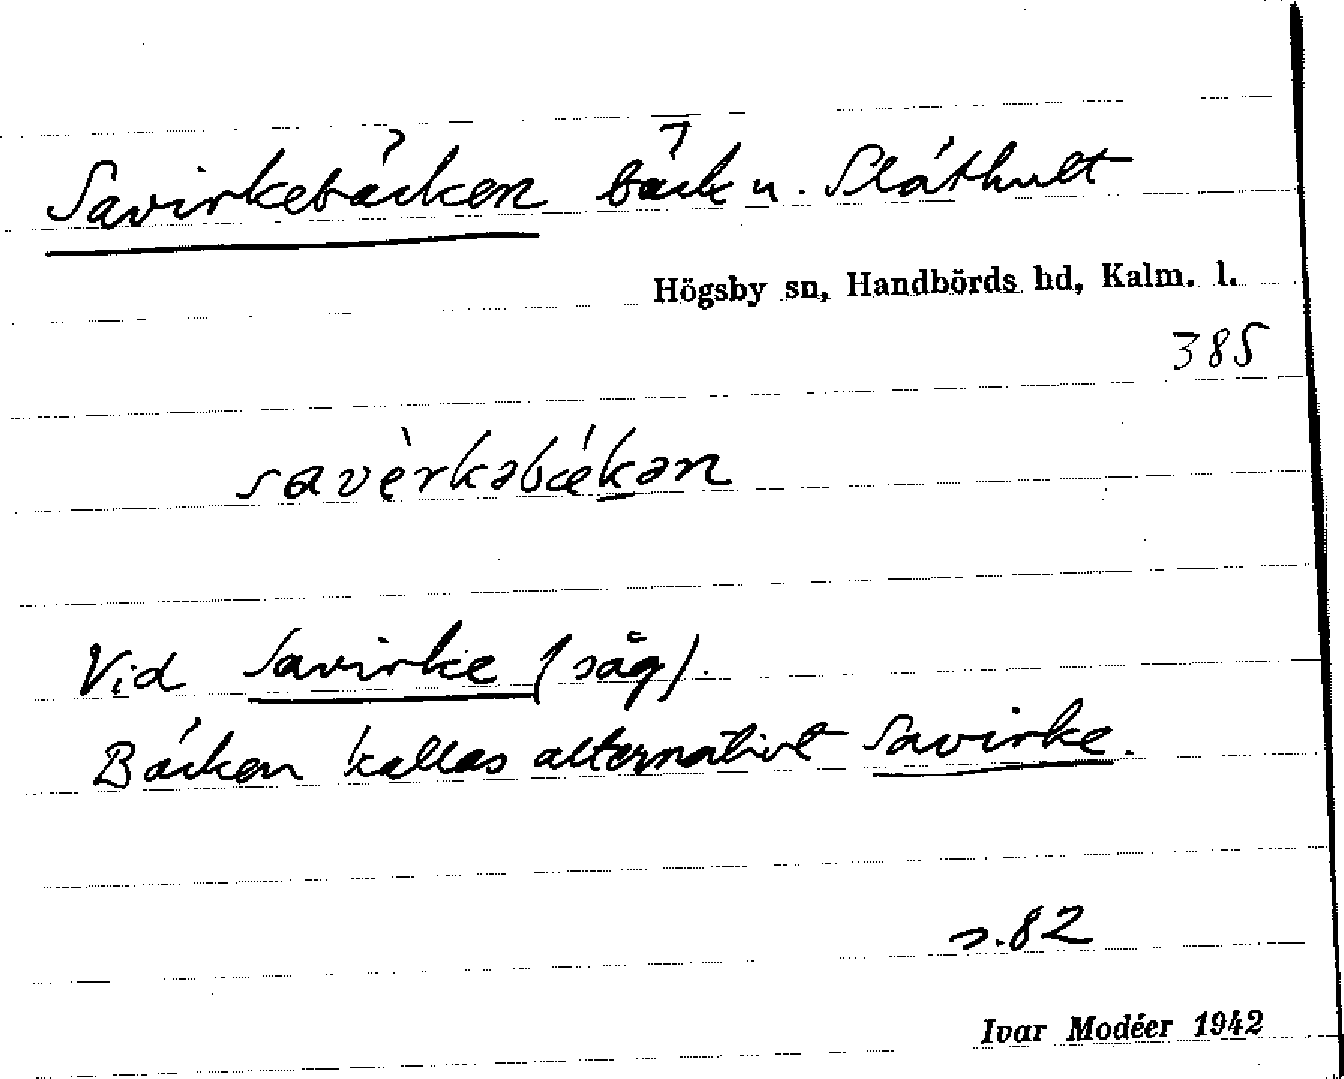 Savirkebäcken bäck u. Släthult
Högsby sn, Handbörds hd, Kalm. l.
385
savèrkəbǽkən
Vid Savirke (säg).
Bäcken kallas alternativt Savirke.
s. 82
Ivar Modéer 1942